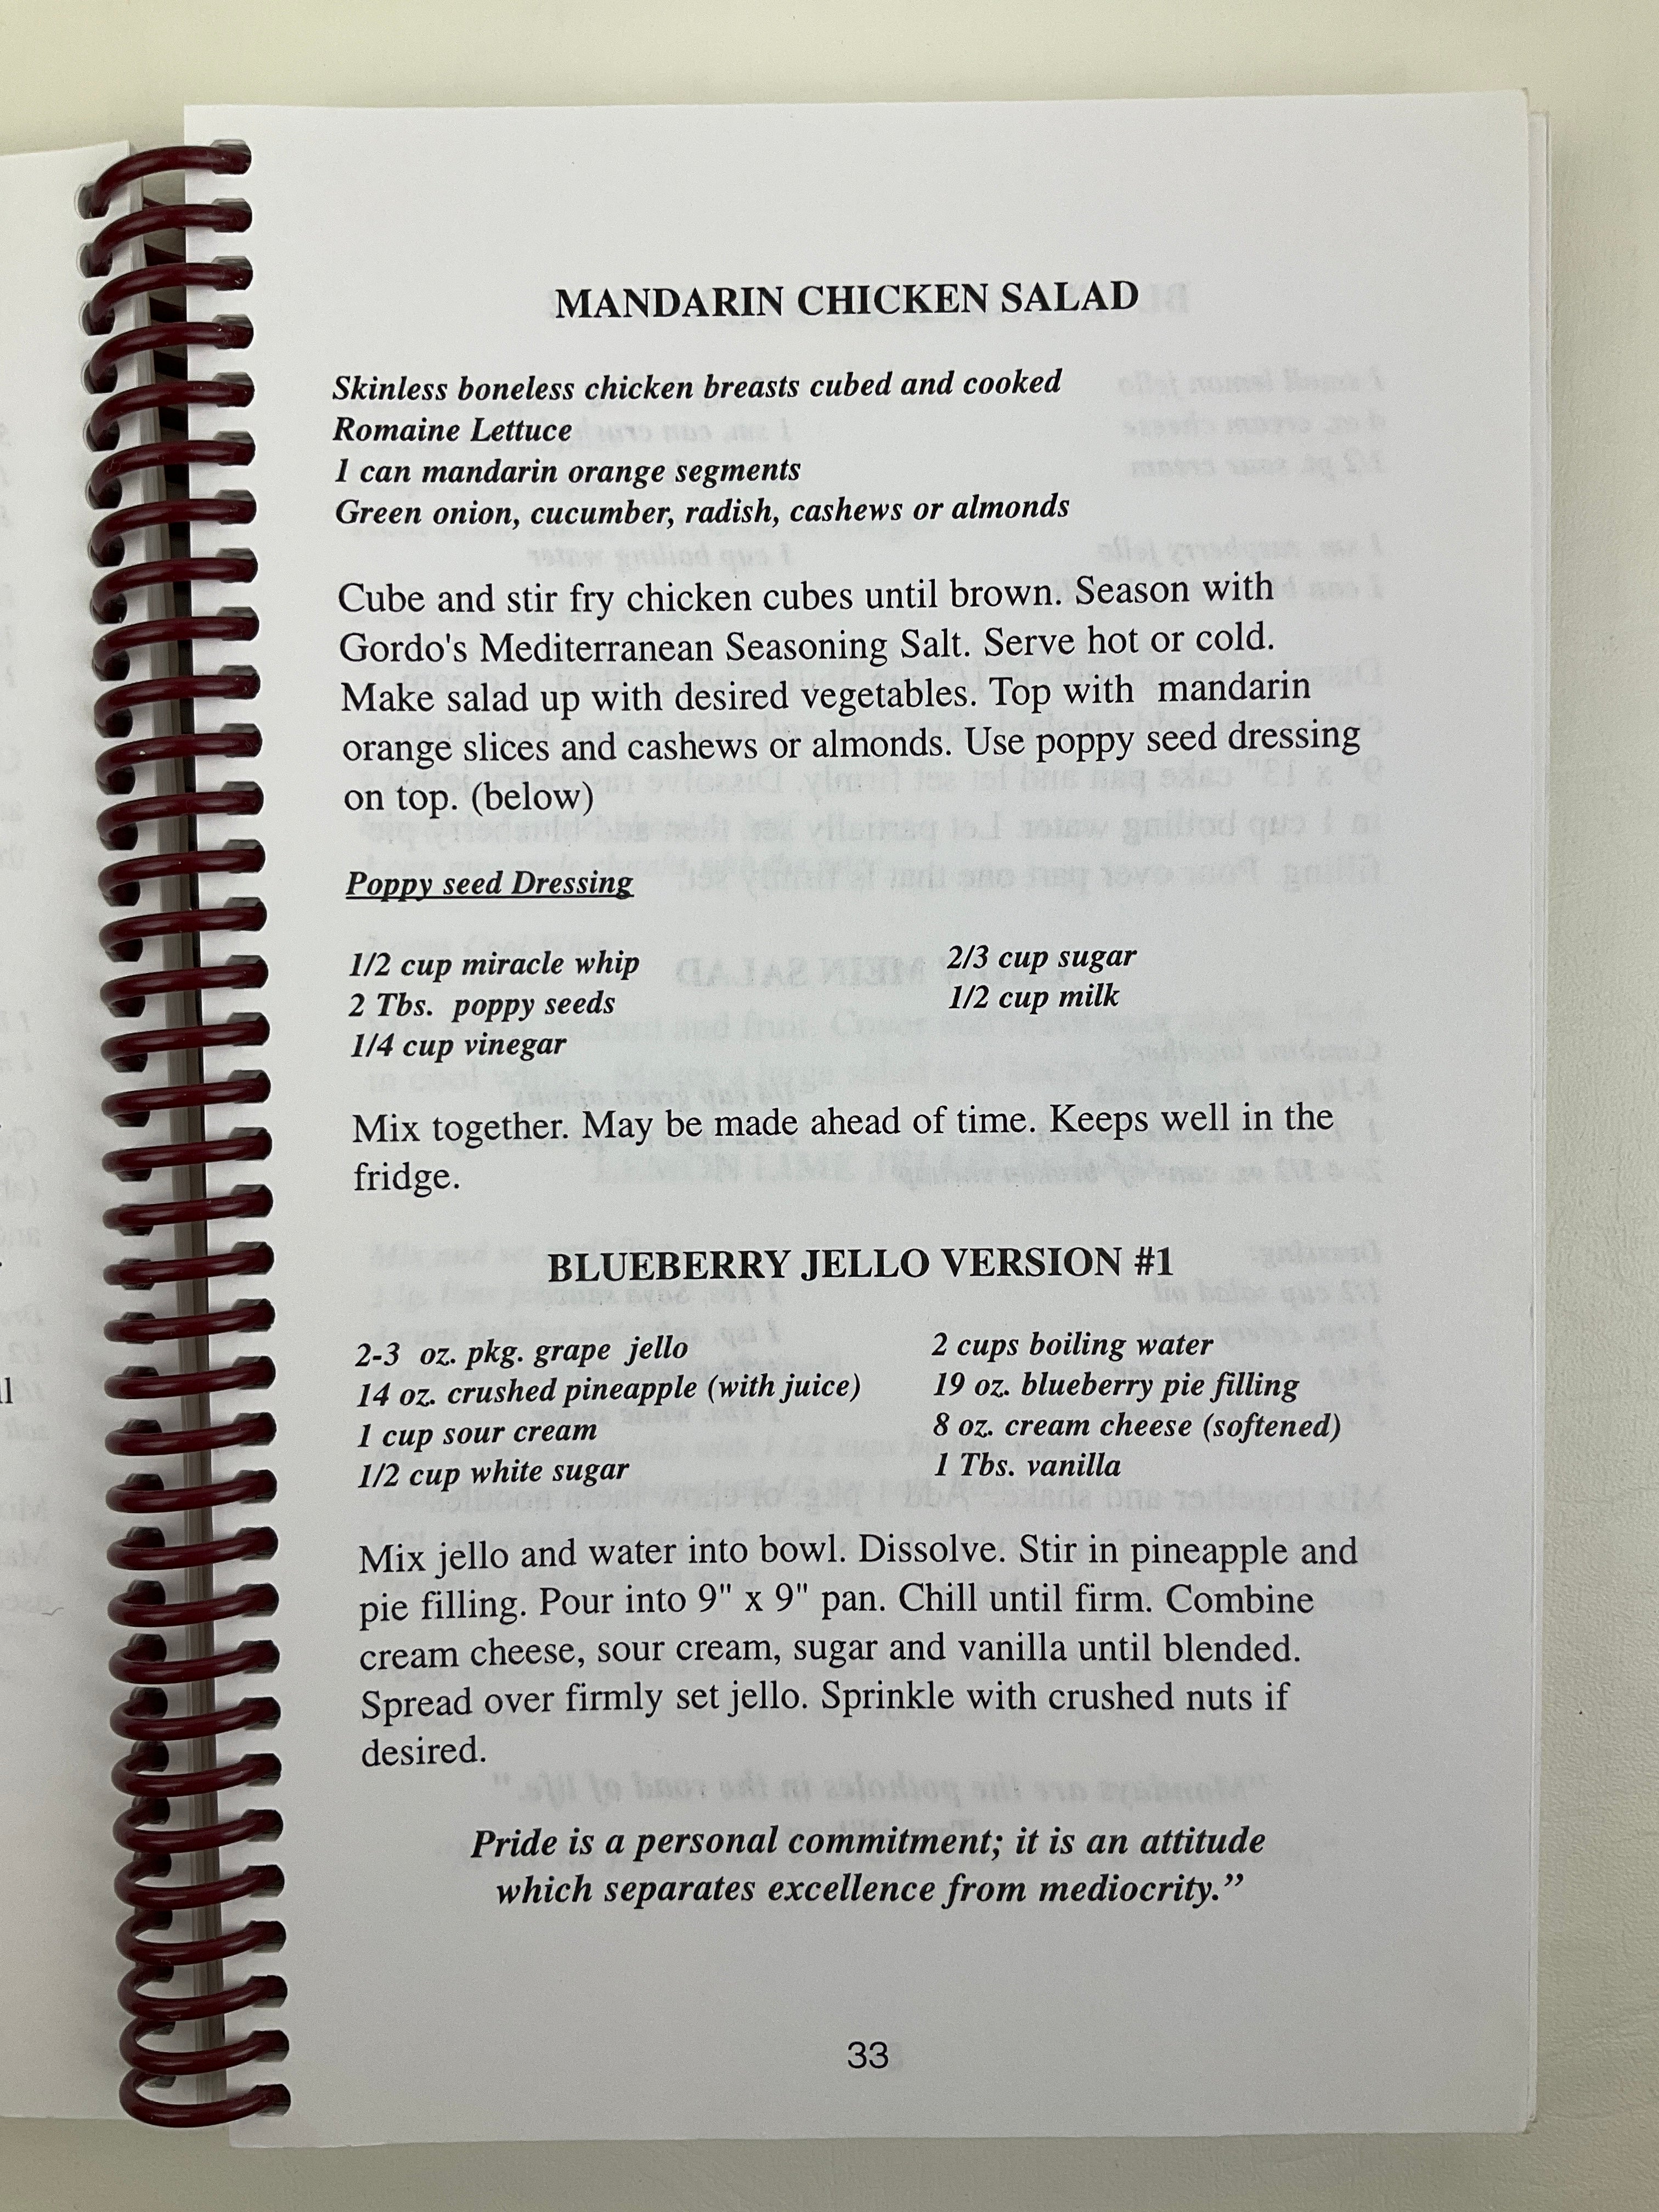 MANDARIN CHICKEN SALAD
Skinless boneless chicken breasts cubed and cooked
Romaine Lettuce
1 can mandarin orange segments
Green onion, cucumber, radish, cashews or almonds
Cube and stir fry chicken cubes until brown. Season with
Gordo's Mediterranean Seasoning Salt. Serve hot or cold.
Make salad up with desired vegetables. Top with mandarin
orange slices and cashews or almonds. Use poppy seed dressing
on top. (below)
Poppy seed Dressing
1/2 cup miracle whip
2 Tbs. poppy seeds
1/4 cup vinegar
2/3 cup sugar
1/2 cup milk
Mix together. May be made ahead of time. Keeps well in the
fridge.
BLUEBERRY JELLO VERSION #1
2-3 oz. pkg. grape jello
14 oz. crushed pineapple (with juice)
1 cup sour cream
1/2 cup white sugar
2 cups boiling water
19 oz. blueberry pie filling
8 oz. cream cheese (softened)
1 Tbs. vanilla
Mix jello and water into bowl. Dissolve. Stir in pineapple and
pie filling. Pour into 9" x 9" pan. Chill until firm. Combine
cream cheese, sour cream, sugar and vanilla until blended.
Spread over firmly set jello. Sprinkle with crushed nuts if
desired.
Pride is a personal commitment; it is an attitude
which separates excellence from mediocrity.”
33